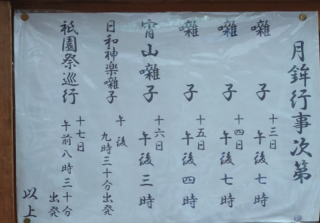 月鉾行事次第
囃子 十三日 午後七時
囃子 十四日 午後七時
囃子 十五日 午後四時
宵山囃子 十六日 午後三時
日和神楽囃子 午後九時三十分出発
祇園祭巡行 十七日 午前八時三十分出発
以上